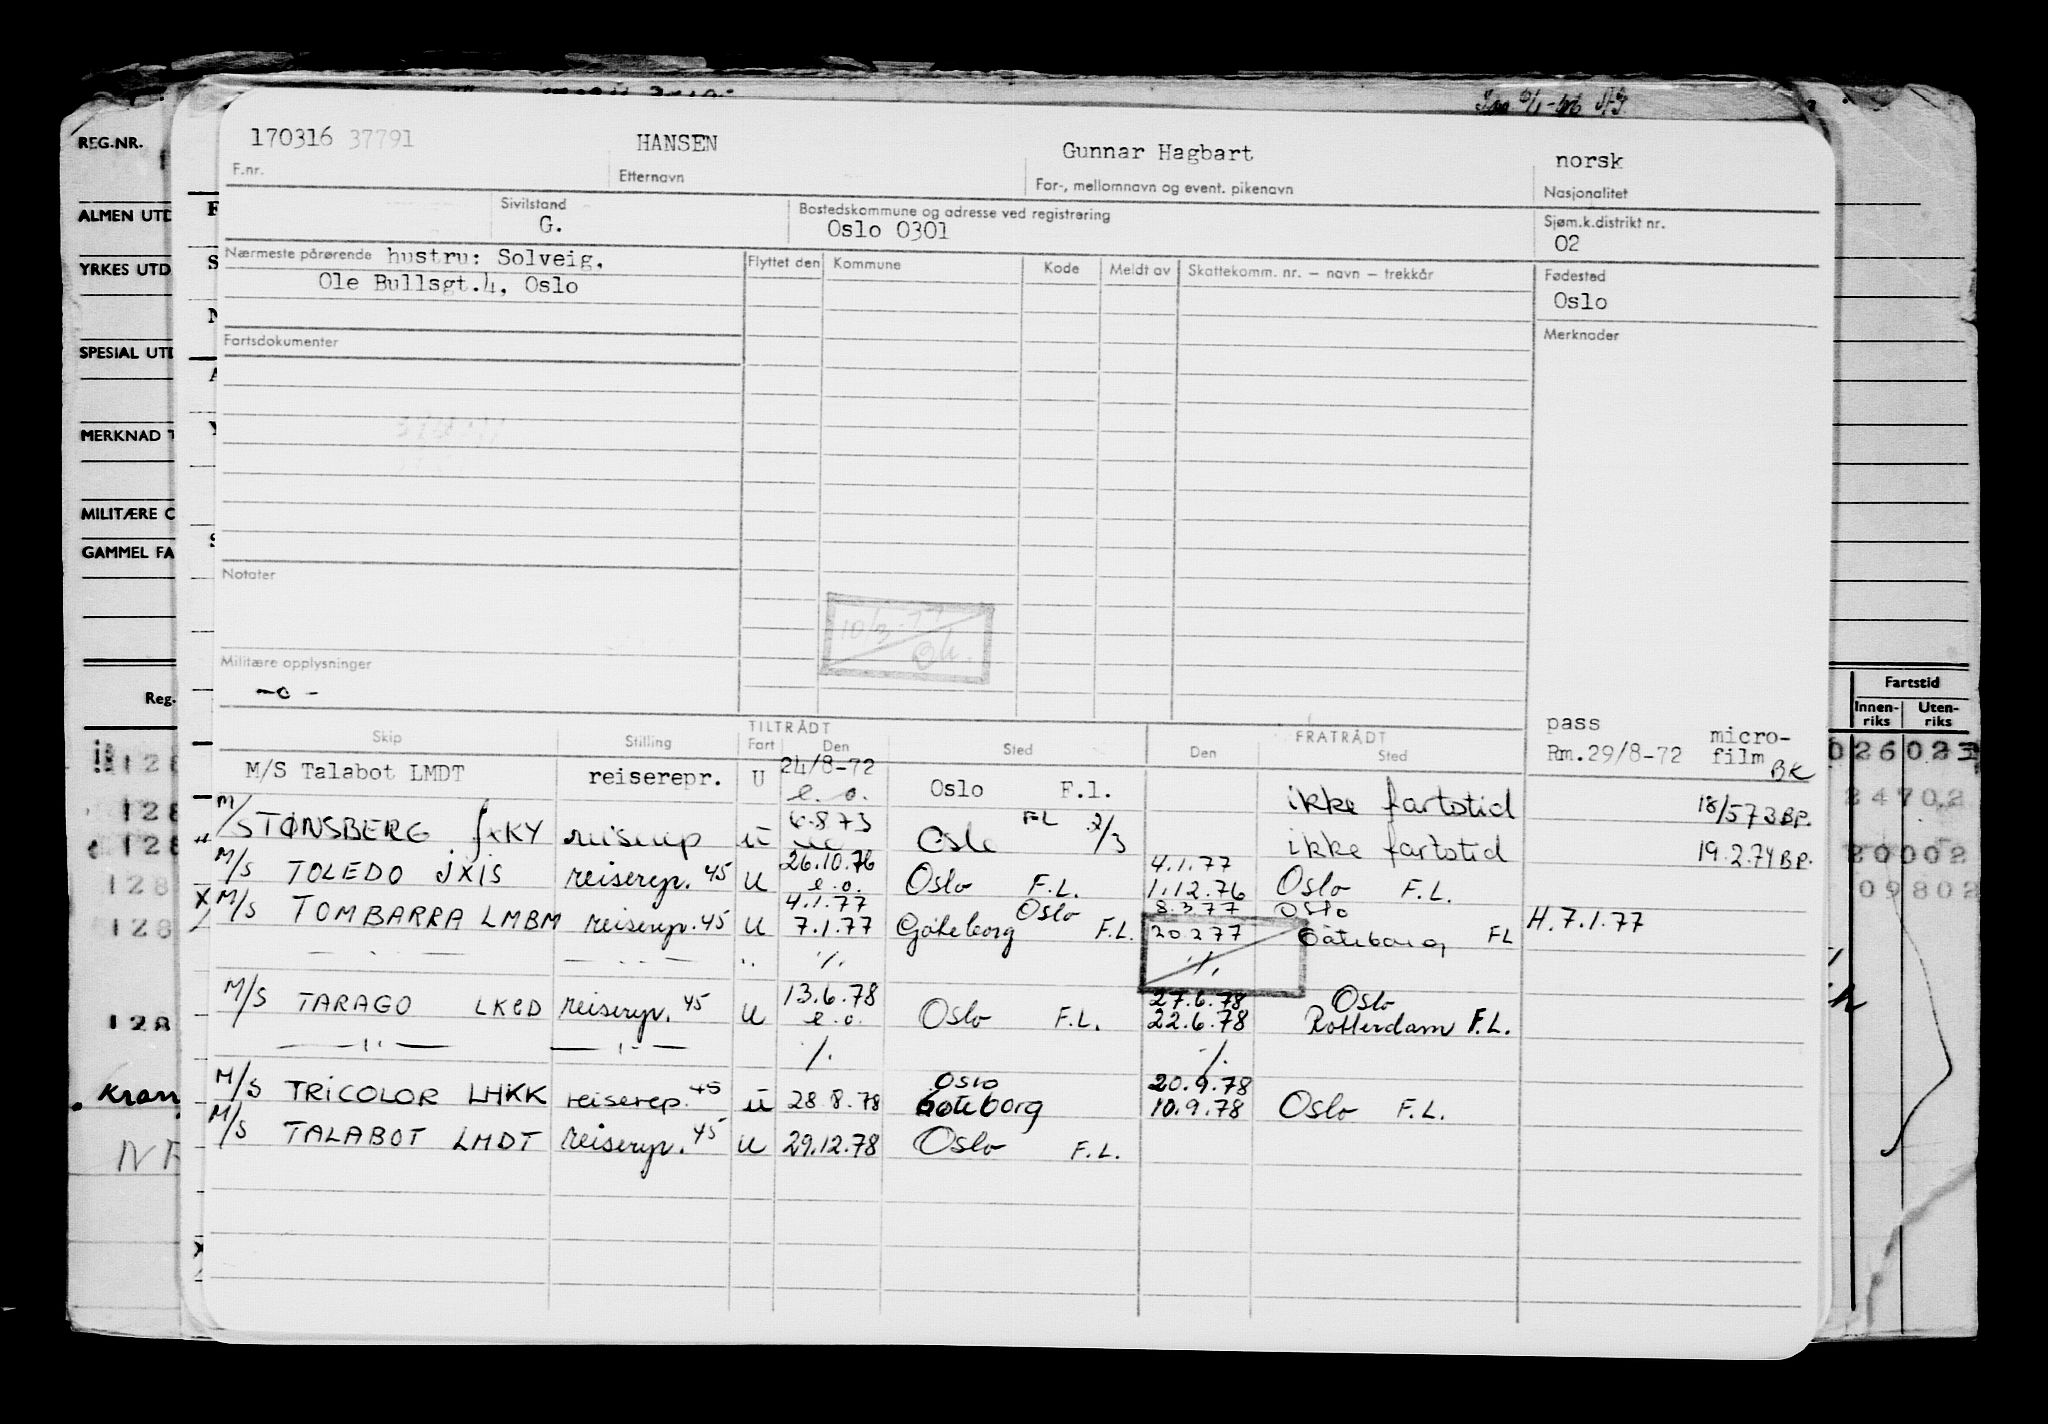 REG.NR.
ALMEN UTD
YRKES UTD.
SPESIAL UTD
MERKNAD T
MILITÆRE O
GAMMEL FA
Reg.
170316 37791 HANSEN Gunnar Hagbart norsk
F.nr. Etternavn For-, mellomnavn og event. pikenavn Nasjonalitet
Sivilstand Bostedskommune og adresse ved registrering Sjøm.k.distrikt nr.
G. Oslo 0301 02
Nærmeste pårørende hustru: Solveig, Flyttet den Kommune Kode Meldt av Skattekomm. nr. – navn – trekkår Fødested
Ole Bullsgt.4, Oslo Oslo
Fartsdokumenter Merknader
Notater
10/3-77
Militære opplysninger
-o-
Fartstid
Innen-riks Uten-riks
TILTRÅDT FRATRÅDT pass micro-
Skip Stilling Fart Den Sted Den Sted Rm.29/8-72 film BK
M/S Talabot LMDT reiserepr. U 24/8-72 e.o. Oslo F.l. ikke fartstid 18/573 BP.
M/S TØNSBERG JXKY reiserep u 6.8 73 Oslo FL 2/3 ikke fartstid 19.2.74 BP.
M/S TOLEDO JXIS reiserep. 45 U 26.10.76 e.o. Oslo F.L. 4.1.77 1.12.76 Oslo F.L.
X M/S TOMBARRA LMBM reiserep. 45 U 4.1.77 7.1.77 Oslo Göteborg F.L. 8.3.77 20.2.77 Oslo Göteborg FL H. 7.1.77
— " — — " — " ·/. ·/.
M/S TARAGO LKCD reiserep. 45 U 13.6.78 e.o. Oslo F.L. 27.6.78 22.6.78 Oslo Rotterdam F.L.
— " — — " — ·/. ·/.
M/S TRICOLOR LHKK reiserep. 45 u 28.8.78 Oslo Göteborg 20.9.78 10.9.78 Oslo F.L.
M/S TALABOT LMDT reiserep. 45 U 29.12.78 Oslo F.L.